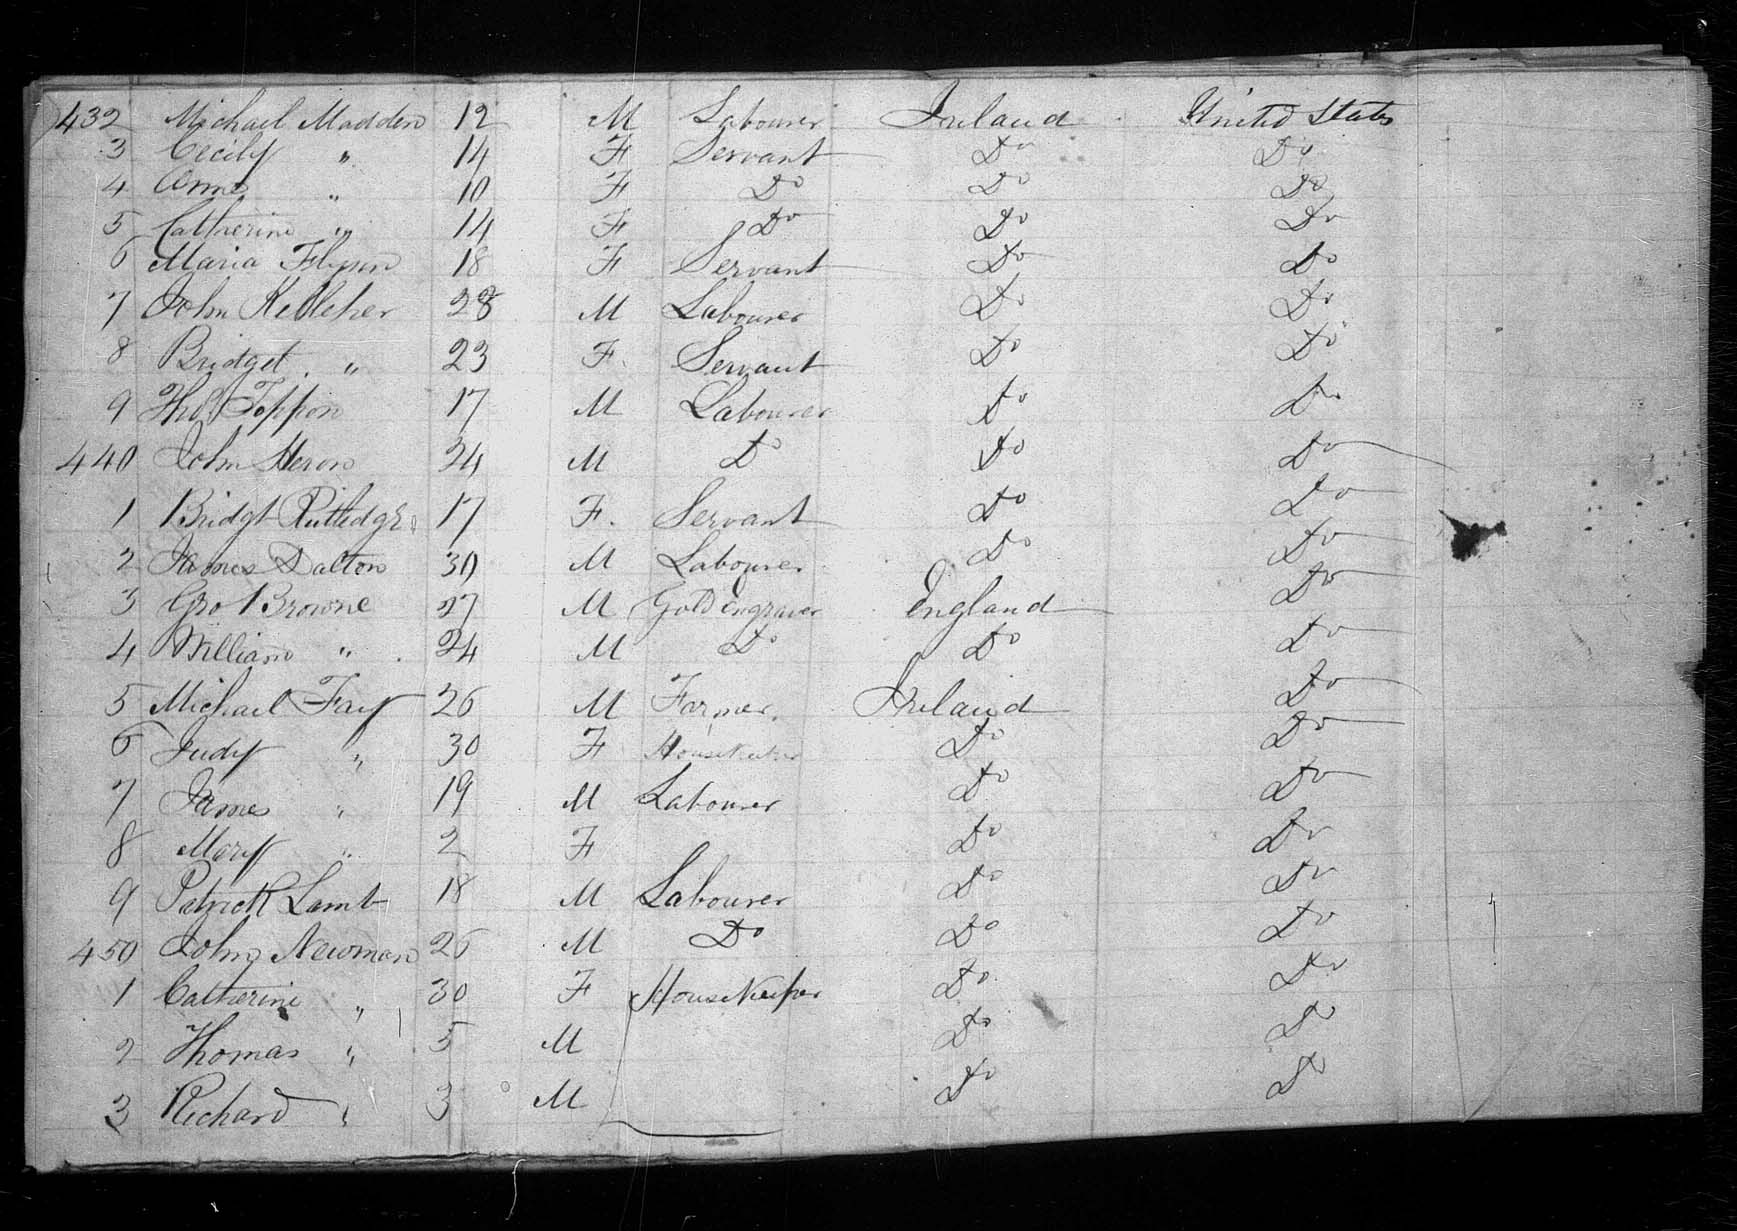 432 Michael Madden 12 M Labourer Ireland United States
3 Cecily " 14 F Servant Do Do
4 Anne " 10 F Do Do Do
5 Catherine " 14 F Do Do Do
6 Maria Flynn 18 F Servant Do Do
7 John Kelleher 28 M Labourer Do Do
8 Bridget " 23 F. Servant Do Do
9 Thos Toppon 17 M Labourer Do Do
440 John Heron 24 M Do Do Do
1 Bridgt Rutledge 17 F. Servant Do Do
2 James Dalton 30 M Labourer Do Do
3 Geo Browne 27 M Gold engraver England Do
4 William " 24 M Do Do Do
5 Michael Fay 26 M Farmer Ireland Do
6 Judy " 30 F Housekeeper Do Do
7 James " 19 M Labourer Do Do
8 Mary " 2 F Do Do
9 Patrick Lamb 18 M Labourer Do Do
450 John Newman 26 M Do Do Do
1 Catherine " 30 F Housekeeper Do Do
2 Thomas " 5 M Do Do
3 Richard " 3 M Do Do